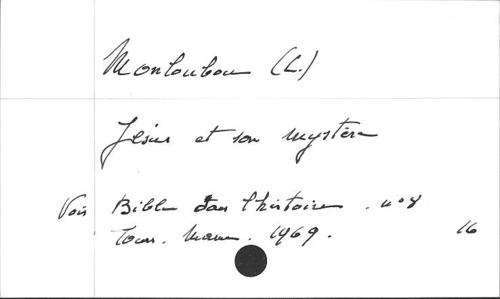 Monloubou (L.)
Jésus et son mystère
Voir Bible dans l'histoire. n° 8
Tours. Mame. 1969. 16